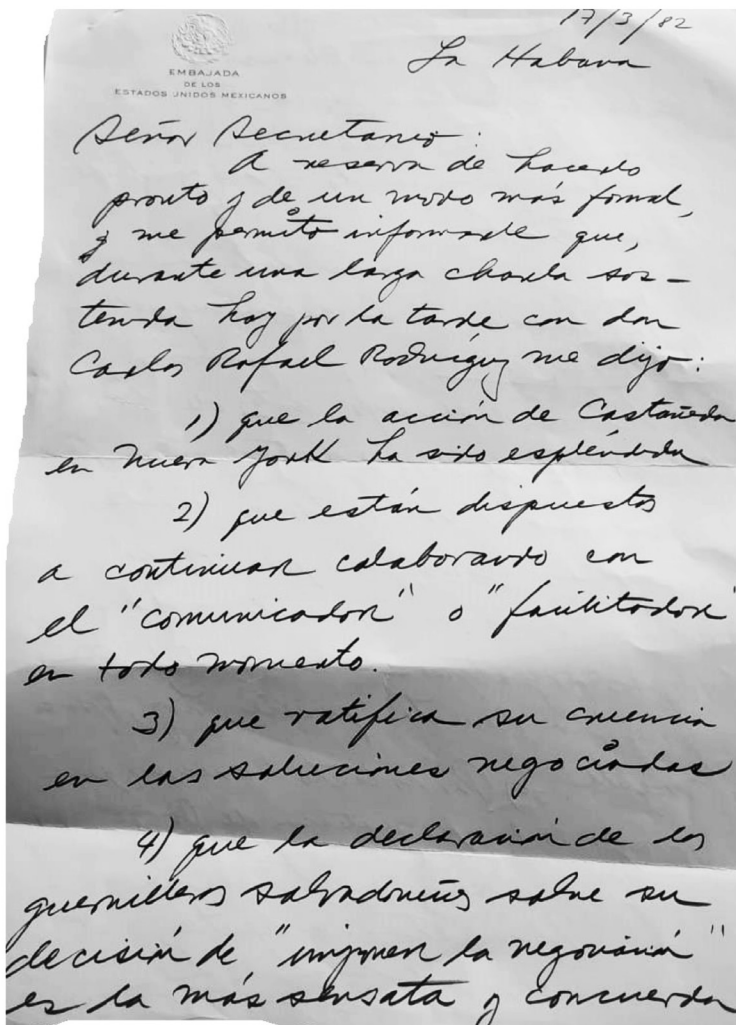 17/3/82
La Habana
EMBAJADA
DE LOS
ESTADOS UNIDOS MEXICANOS
Señor Secretario:
A reserva de hacerlo
pronto y de un modo más formal,
y me permito informarle que,
durante una larga charla sos-
tenida hoy por la tarde con don
Carlos Rafael Rodríguez me dijo:
1) que la acción de Castañeda
en Nueva York ha sido espléndida
2) que están dispuestos
a continuar colaborando con
el "comunicador" o "facilitador"
en todo momento.
3) que ratifica su creencia
en las soluciones negociadas
4) que la declaración de los
guerrilleros salvadoreños sobre su
decisión de "imponer la negociación"
es la más sensata y concuerda